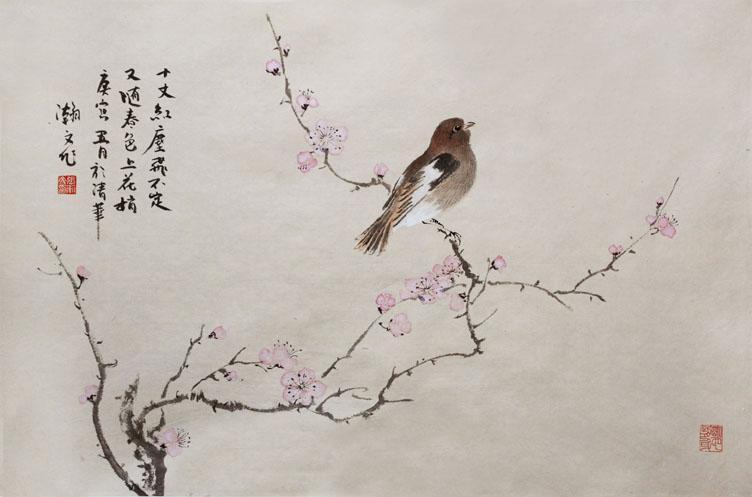 十丈红尘飛不定
又随春色上花梢
庚寅五月於清華
瀚文作